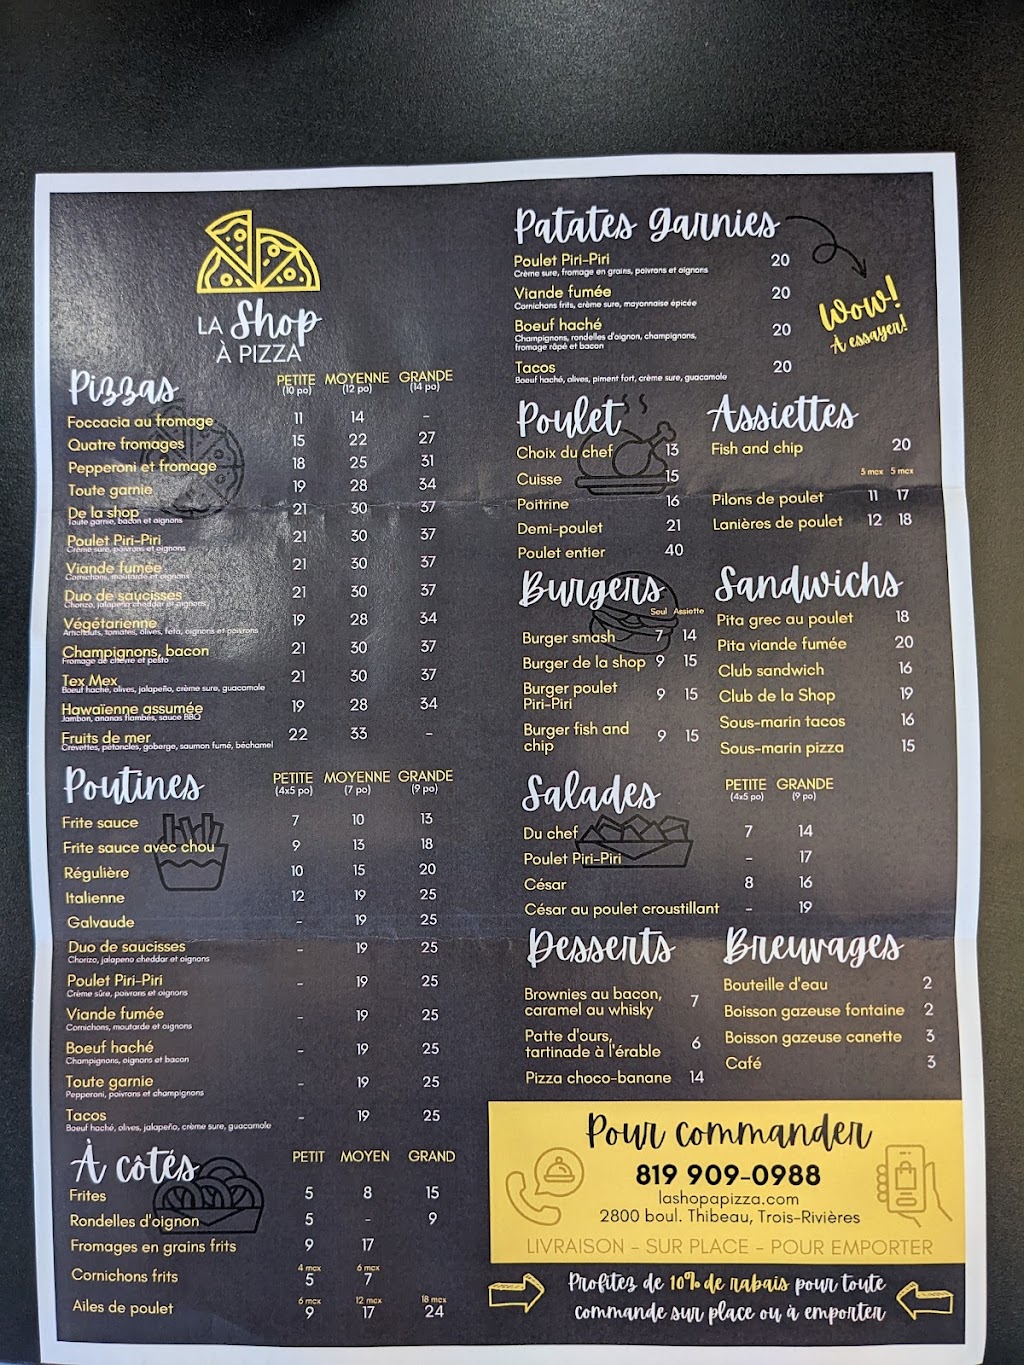 LA Shop
À PIZZA
Pizzas
PETITE MOYENNE GRANDE
(10 po) (12 po) (14 po)
Foccacia au fromage 11 14 -
Quatre fromages 15 22 27
Pepperoni et fromage 18 25 31
Toute garnie 19 28 34
De la shop 21 30 37
Toute garnie, bacon et oignons
Poulet Piri-Piri 21 30 37
Crème sure, poivrons et oignons
Viande fumée 21 30 37
Cornichons, moutarde et oignons
Duo de saucisses 21 30 37
Chorizo, jalapeno cheddar et oignons
Végétarienne 19 28 34
Artichauts, tomates, olives, feta, oignons et poivrons
Champignons, bacon 21 30 37
Fromage de chèvre et pesto
Tex Mex 21 30 37
Boeuf haché, olives, jalapeño, crème sure, guacamole
Hawaïenne assumée 19 28 34
Jambon, ananas flambés, sauce BBQ
Fruits de mer 22 33 -
Crevettes, pétoncles, goberge, saumon fumé, béchamel
Poutines
PETITE MOYENNE GRANDE
(4x5 po) (7 po) (9 po)
Frite sauce 7 10 13
Frite sauce avec chou 9 13 18
Régulière 10 15 20
Italienne 12 19 25
Galvaude - 19 25
Duo de saucisses - 19 25
Chorizo, jalapeno cheddar et oignons
Poulet Piri-Piri - 19 25
Crème sûre, poivrons et oignons
Viande fumée - 19 25
Cornichons, moutarde et oignons
Boeuf haché - 19 25
Champignons, oignons et bacon
Toute garnie - 19 25
Pepperoni, poivrons et champignons
Tacos - 19 25
Boeuf haché, olives, jalapeño, crème sure, guacamole
À côtés
PETIT MOYEN GRAND
Frites 5 8 15
Rondelles d'oignon 5 - 9
Fromages en grains frits 9 17
4 mcx 6 mcx
Cornichons frits 5 7
6 mcx 12 mcx 18 mcx
Ailes de poulet 9 17 24
Patates garnies
Poulet Piri-Piri 20
Crème sure, fromage en grains, poivrons et oignons
Viande fumée 20
Cornichons frits, crème sure, mayonnaise épicée
Boeuf haché 20
Champignons, rondelles d'oignon, champignons,
fromage râpé et bacon
Tacos 20
Boeuf haché, olives, piment fort, crème sure, guacamole
Wow!
À essayer!
Poulet
Choix du chef 13
Cuisse 15
Poitrine 16
Demi-poulet 21
Poulet entier 40
Assiettes
Fish and chip 20
3 mcx 5 mcx
Pilons de poulet 11 17
Lanières de poulet 12 18
Burgers
Seul Assiette
Burger smash 7 14
Burger de la shop 9 15
Burger poulet
Piri-Piri 9 15
Burger fish and
chip 9 15
Sandwichs
Pita grec au poulet 18
Pita viande fumée 20
Club sandwich 16
Club de la Shop 19
Sous-marin tacos 16
Sous-marin pizza 15
Salades
PETITE GRANDE
(4x5 po) (9 po)
Du chef 7 14
Poulet Piri-Piri - 17
César 8 16
César au poulet croustillant - 19
Desserts
Brownies au bacon,
caramel au whisky 7
Patte d'ours,
tartinade à l'érable 6
Pizza choco-banane 14
Breuvages
Bouteille d'eau 2
Boisson gazeuse fontaine 2
Boisson gazeuse canette 3
Café 3
Pour commander
819 909-0988
lashopapizza.com
2800 boul. Thibeau, Trois-Rivières
LIVRAISON - SUR PLACE - POUR EMPORTER
Profitez de 10% de rabais pour toute
commande sur place ou à emporter